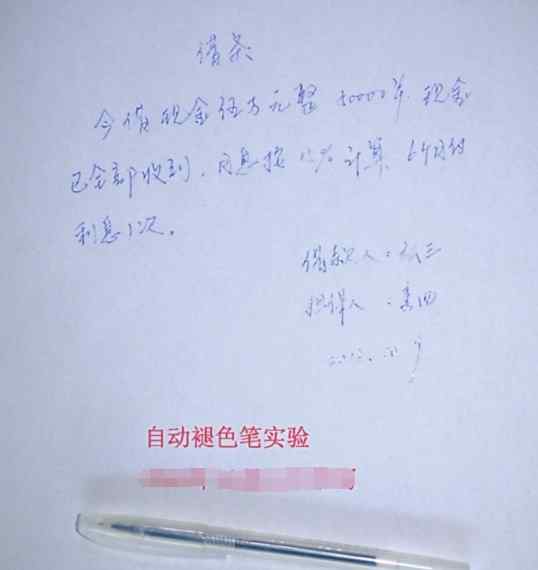 借条
今借现金伍万元整 50000年 现金
已全部收到,月息按 1.2% 计算 6个月付
利息1次。
借款人:张三
担保人:李四
自动褪色笔实验